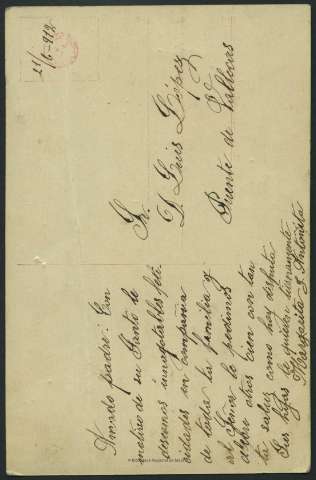 21/6-912
Sr.
D. Luis López
Puente de Vallecas
Amado padre: Con
motivo de su Santo le
deseamos innagotables feli-
cidades en compañia
de toda la familia y
al Señor le pedimos
celebre otros cien con tan
ta salud como hoy disfruta
Sus hijas le quieren tiernamente
Margarita y Antoñita